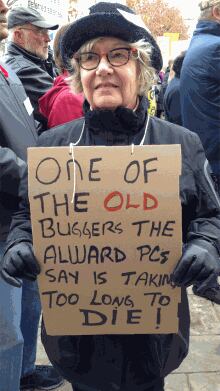 ONE OF
THE OLD
BUGGERS THE
ALWARD PCs
SAY IS TAKING
TOO LONG TO
DIE!